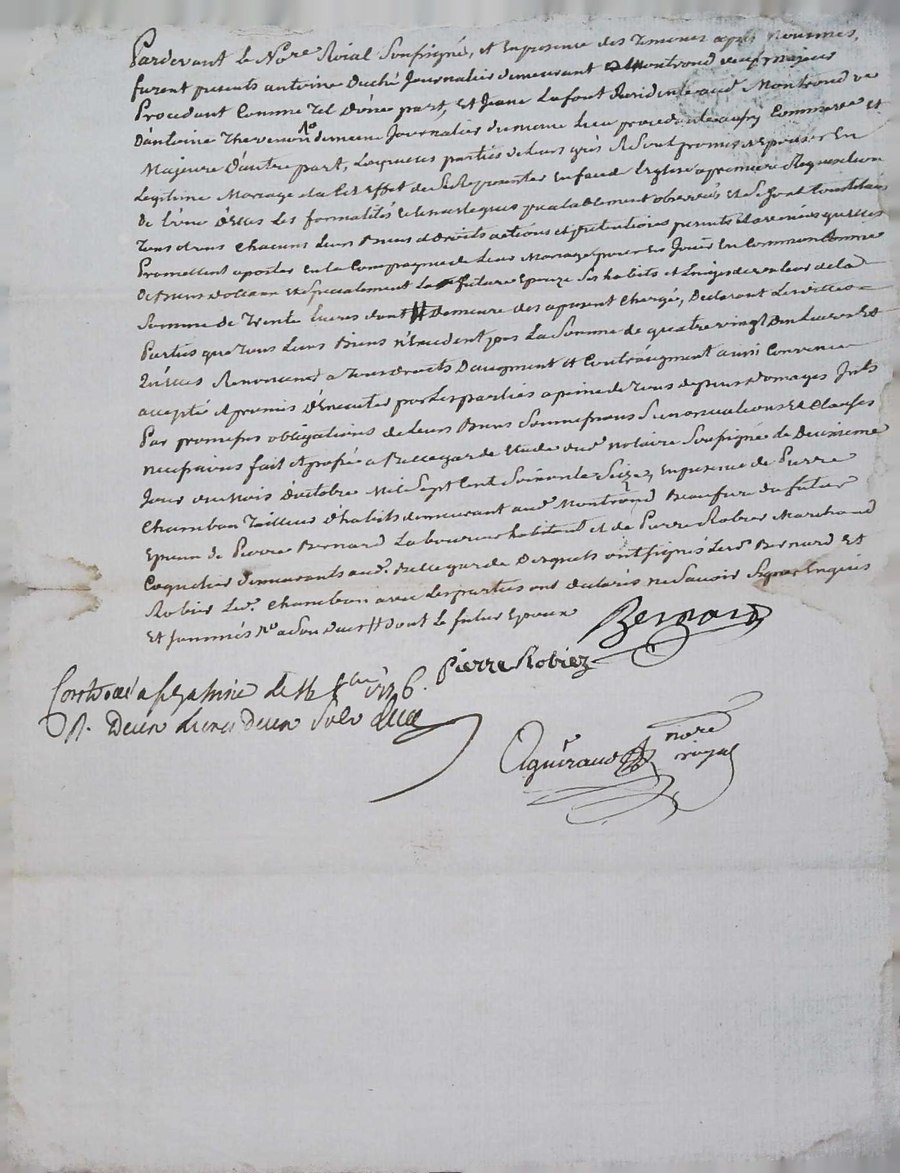 Pardevant le No.re Roial Soussigné, et En presence des Temoins apres nommés,
furent presents antoine Duché Journalier demeurant a Montrond veuf majeur
Procedant Comme Tel D'une part, Et Jeane Lafont Residente aud Montrond ve
D'antoine Thevenon demeure Journalier du meme Lieu procedante aussy Comme ve Et
Majeure D'autre part, Lesquelles parties de Leurs grès Se Sont promis d'Epouser En
Legitime Mariage et a Cet Effet de Se Representer En face de L'eglise a premiere Requisition
De L'une D'elles Les formalités Et preallablement observés Et Se Sont Constitués
Tous deux Chacuns Leurs Biens et droits actions et pretentions presents Et avenirs qu'elles
Promettent aporter En la Compagnie de Leur Mariage pour En Jouir En Commun Comme
de Biens dotaux Et Specialement La future Epouze Ses habits et Linges de valeur de la
Somme de Trente Livres dont H Demeure des apresent Chargé, Declarant Lesdittes
Parties que Tous Leurs Biens n'Excedent pas La Somme de quatre vingt dix Livres Et
qu'elles Renoncent a Tous droits D'augment Et Contraugment ainsi Convenu
accepté Et promis D'Executer par Les parties a peine de Tous depens Domages Intts
Par promesses obligations de Leurs Biens Soumissions Renonciations Et Clauses
necessaires fait Et passé a Bellegarde Etude dud notaire Soussigné Le Deuxieme
Jour du Mois D'octobre Mil Sept Cent Soixante Seize, En presence de Pierre
Chambon Tailleur D'habits demeurant aud Montrond Beaufrere du futur
Epoux de Pierre Bernard Laboureur habitant et de Pierre Robier Marchand
Coquetier demeurants aud. Bellegarde Desquels ont Signés Led. Bernard Et
Robier Led. Chambon avec Les parties ont declarés ne Savoir Signer Enquis
Et Sommés H dont le futur Epoux
Bernard
Pierre Robiez
Controllé a le 1776.
R. Deux Livres Deux Sols
Aguiraud nore
royal